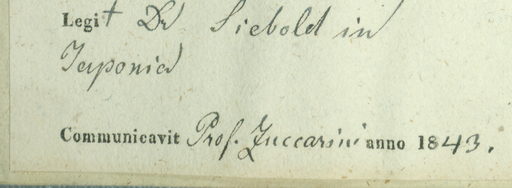 Legit Dr Siebold in
Japonia
Communicavit Prof. Zuccarini anno 1843.